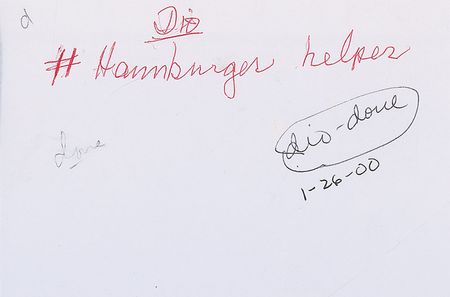 d
Dio
# Hamburger helper
Done
dio-done
1-26-00